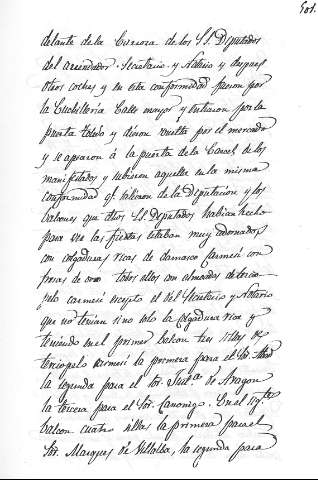 501.
delante de la Carroza de los SS. Diputados
del arrendador, Secretario y Notario y despues
otros coches y en esta conformidad fueron por
la Cuchilleria Calle mayor y entraron por la
puerta toledo y dieron vuelta por el mercado
y se apearon á la puerta de la Carcel de los
manifestados y subieron aquella en la misma
conformidad qe salieron de la Diputacion y los
balcones que dhos SS. Diputados habian hecho
para ver las fiestas estaban muy adornados
con colgaduras ricas de damasco Carmesi con
franjas de oro todos ellos con almoadas de tercio
pelo carmesi excepto el del Secretario y Notario
que no tenian sino solo la colgadura rica y
teniendo en el primer balcon tres sillas de
terciopelo carmesi la primera para el Sr.
la segunda para el Sor. Justa. de Aragon
la tercera para el Sor. Canonigo. En el segdo.
balcon cuatro sillas la primera para el
Sor. Marques de Villalba, la segunda para